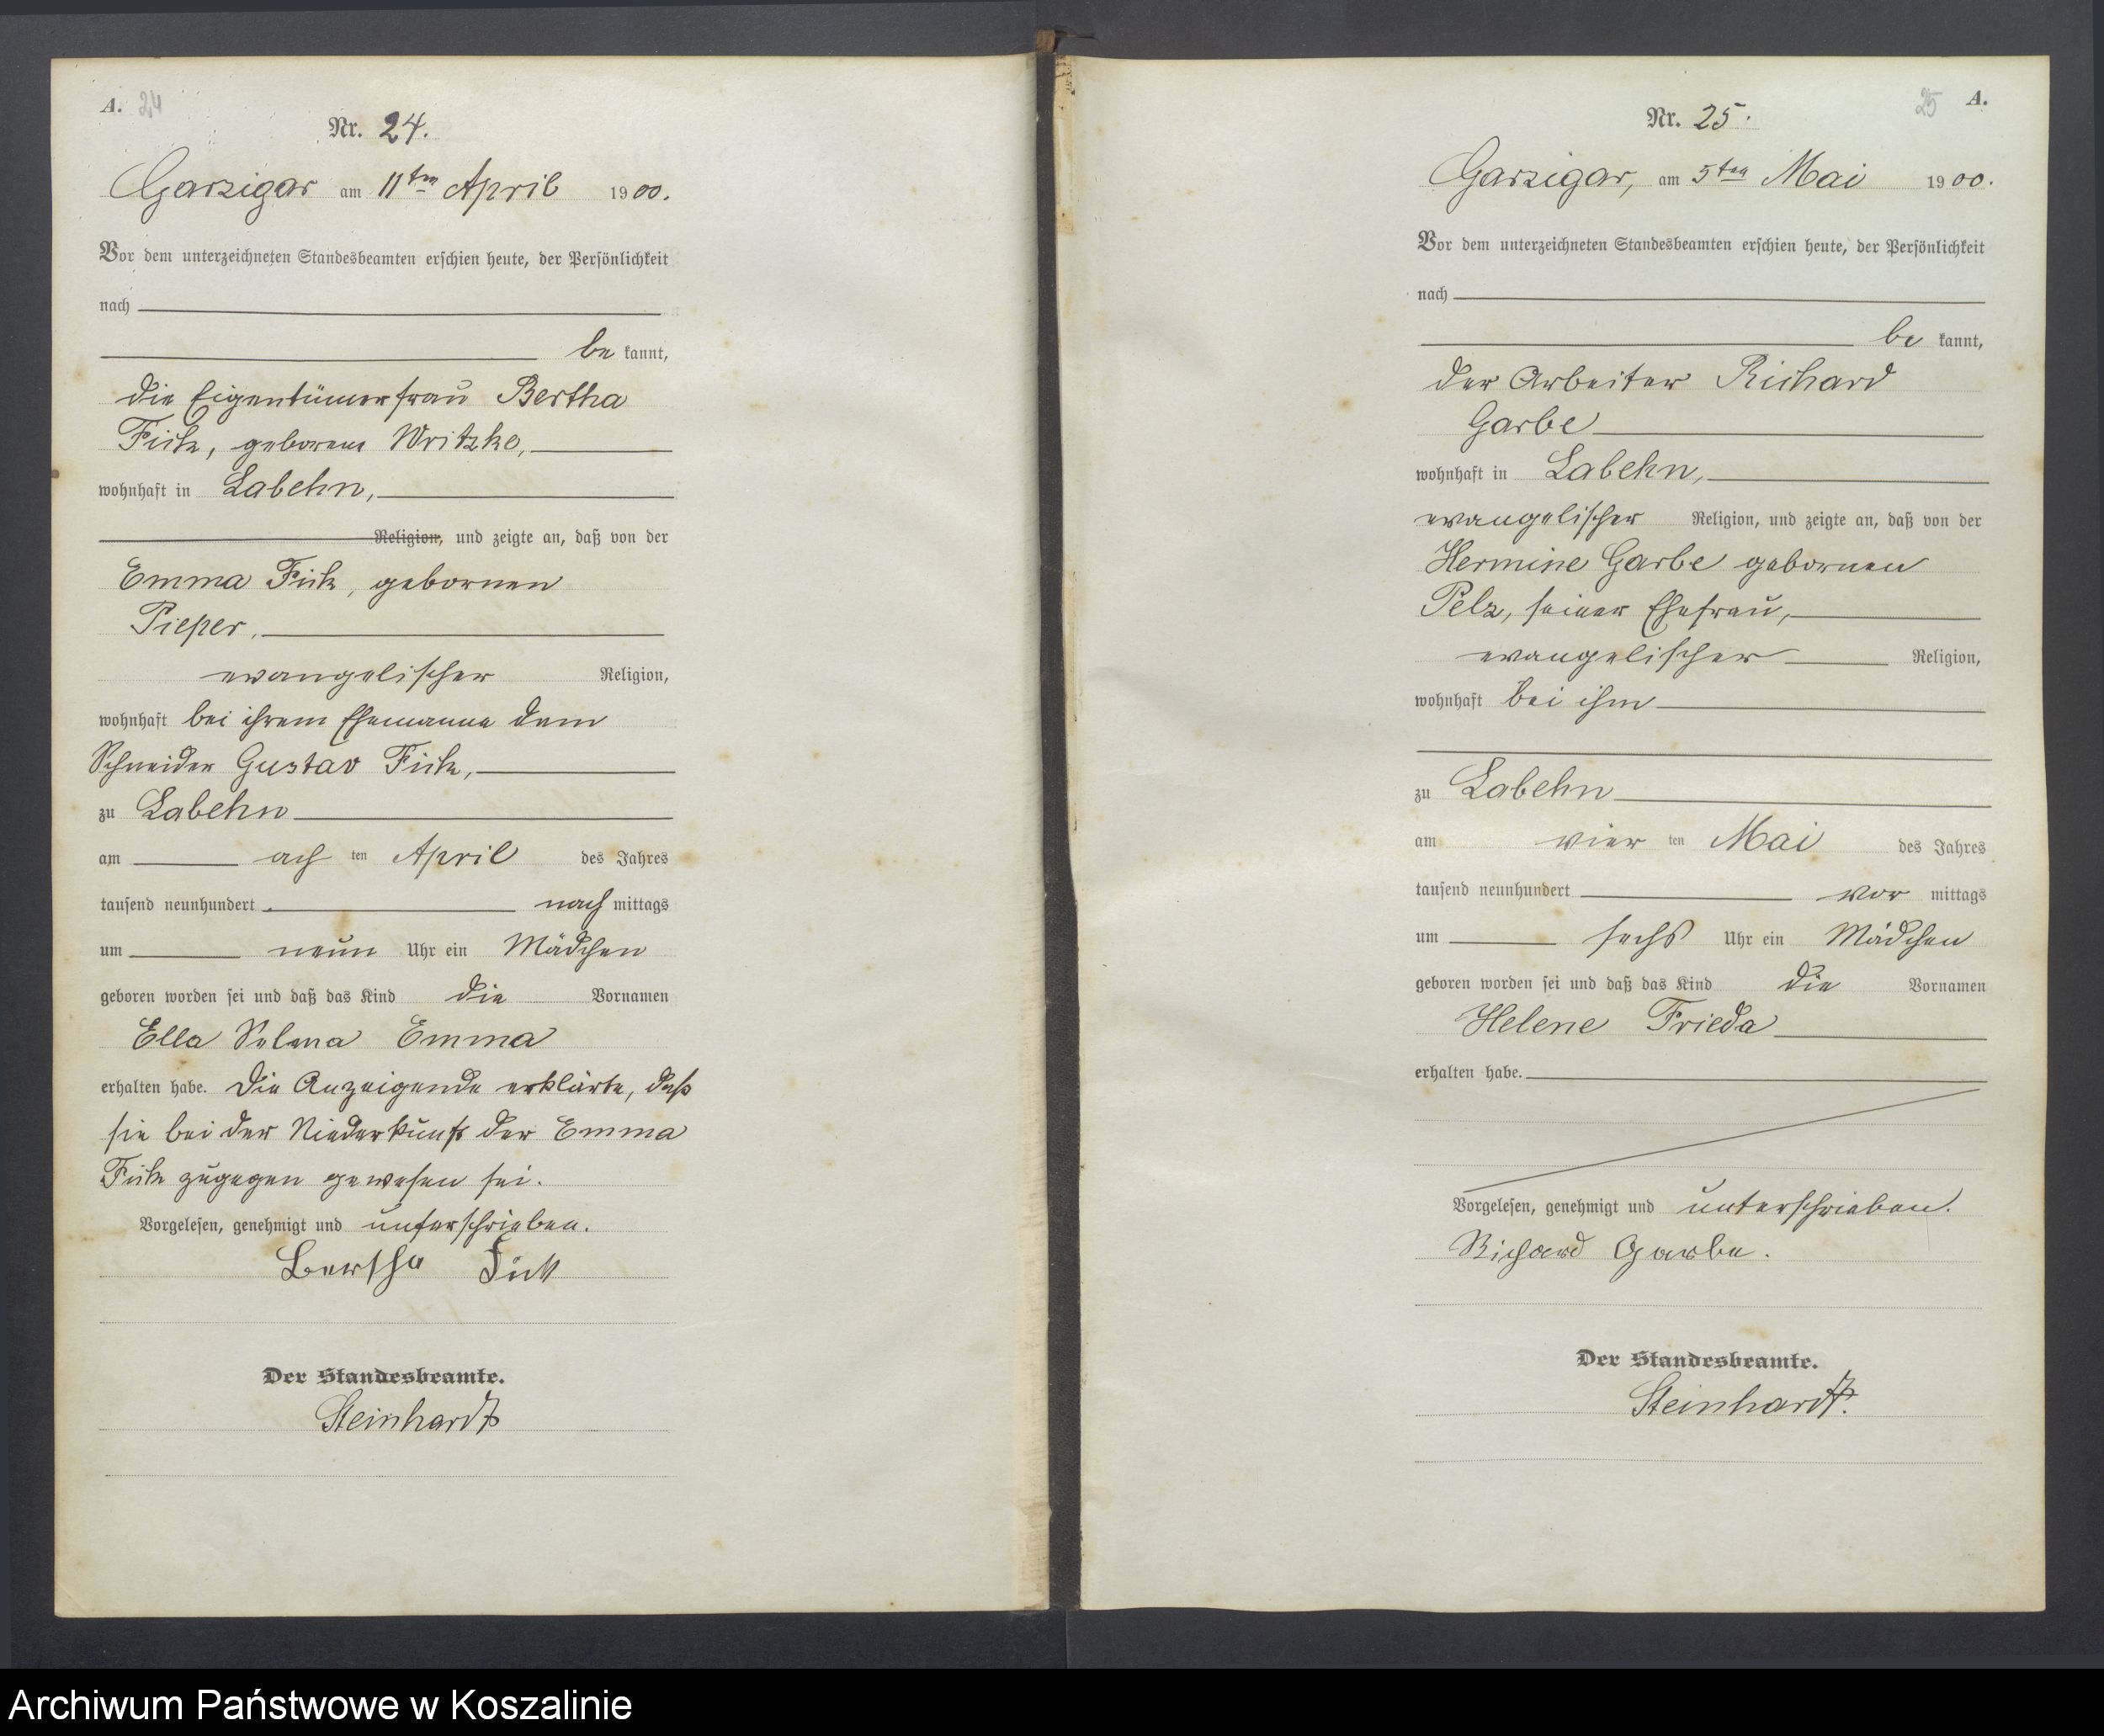 A. 24
Nr. 24.
Garzigar am 11ten April 1900.
Vor dem unterzeichneten Standesbeamten erschien heute, der Persönlichkeit
nach
be kannt,
die Eigentümerfrau Bertha
Fick, geborene Writzke,
wohnhaft in Labehn,
Religion, und zeigte an, daß von der
Emma Fick, gebornen
Pieper,
evangelischer Religion,
wohnhaft bei ihrem Ehemanne dem
Schneider Gustav Fick,
zu Labehn
am ach ten April des Jahres
tausend neunhundert nach mittags
um neun Uhr ein Mädchen
geboren worden sei und daß das Kind die Vornamen
Ella Selma Emma
erhalten habe. Die Anzeigende erklärte, daß
sie bei der Niederkunft der Emma
Fick zugegen gewesen sei.
Vorgelesen, genehmigt und unterschrieben.
Bertha Fick
Der Standesbeamte.
Steinhardt
25 A.
Nr. 25.
Garzigar, am 5ten Mai 1900.
Vor dem unterzeichneten Standesbeamten erschien heute, der Persönlichkeit
nach
be kannt,
der Arbeiter Richard
Garbe
wohnhaft in Labehn,
evangelischer Religion, und zeigte an, daß von der
Hermine Garbe gebornen
Pelz, seiner Ehefrau,
evangelischer Religion,
wohnhaft bei ihm
zu Labehn
am vier ten Mai des Jahres
tausend neunhundert vor mittags
um sechs Uhr ein Mädchen
geboren worden sei und daß das Kind die Vornamen
Helene Frieda
erhalten habe.
Vorgelesen, genehmigt und unterschrieben.
Richard Garbe.
Der Standesbeamte.
Steinhardt.
Archiwum Państwowe w Koszalinie